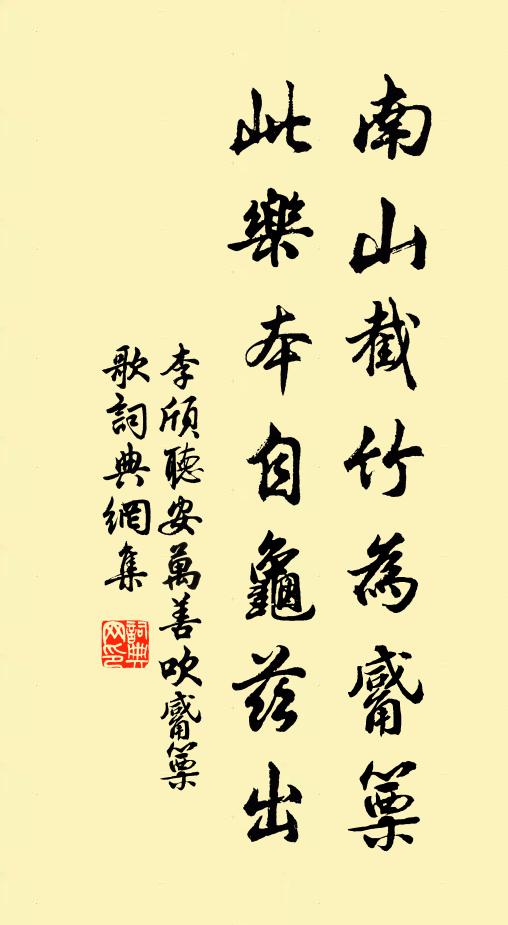 南山截竹為觱篥
此樂本自龜茲出
李頎聽安萬善吹觱篥
歌詞典網集
詞典
网印